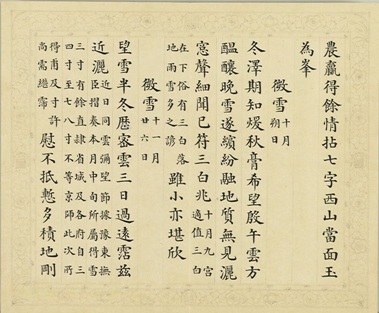 農贏得餘情拈七字西山當面玉
為峯
微雪十月朔日
冬澤期知煖秋膏希望殷午雲方
醖釀晚雪遂繽紛融地質無見灑
窓聲細聞已符三白兆十月九宮適值三白
在下俗有三白落地雨雪多之諺雖小亦堪欣
微雪十一月廿六日
望雪半冬厯密雲三日過遠霑茲
近灑近日同雲彌望節據豫東撫臣摺奏本月中旬所屬得雪
三寸有餘直隸省城及各府自三四寸至七八寸不等京師此次所
得甫及寸許尚需繼霈慰不抵慙多積地剛